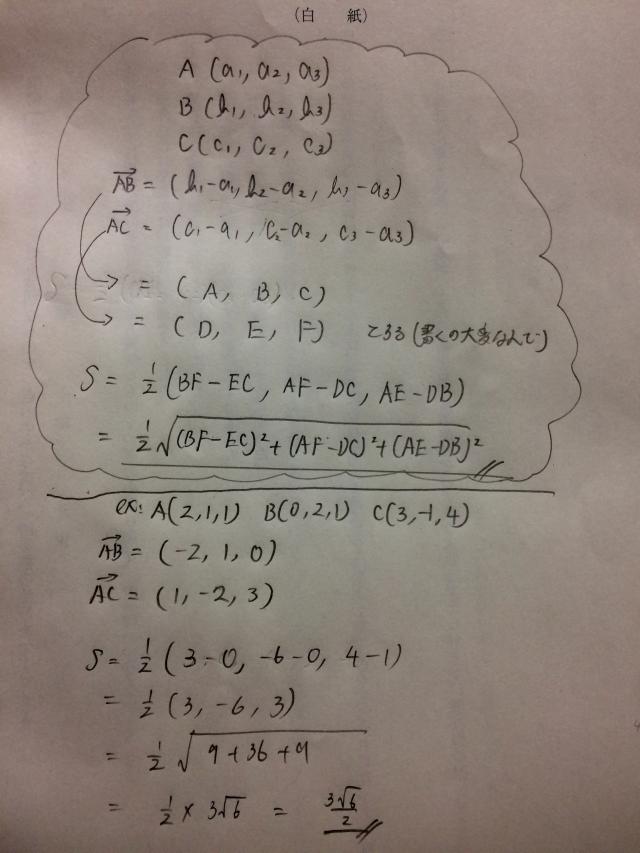 (白 紙)
A (a₁, a₂, a₃)
B (b₁, b₂, b₃)
C (c₁, c₂, c₃)
$\overrightarrow{AB}$ = (b₁-a₁, b₂-a₂, b₃-a₃)
$\overrightarrow{AC}$ = (c₁-a₁, c₂-a₂, c₃-a₃)
→ = (A, B, C)
→ = (D, E, F) とする(書くの大変なんで)
S = 1/2 (BF-EC, AF-DC, AE-DB)
= 1/2 √((BF-EC)²+(AF-DC)²+(AE-DB)²)
ex: A(2,1,1) B(0,2,1) C(3,-1,4)
$\overrightarrow{AB}$ = (-2, 1, 0)
$\overrightarrow{AC}$ = (1, -2, 3)
S = 1/2 (3-0, -6-0, 4-1)
= 1/2 (3, -6, 3)
= 1/2 √(9+36+9)
= 1/2 × 3√6 = 3√6/2